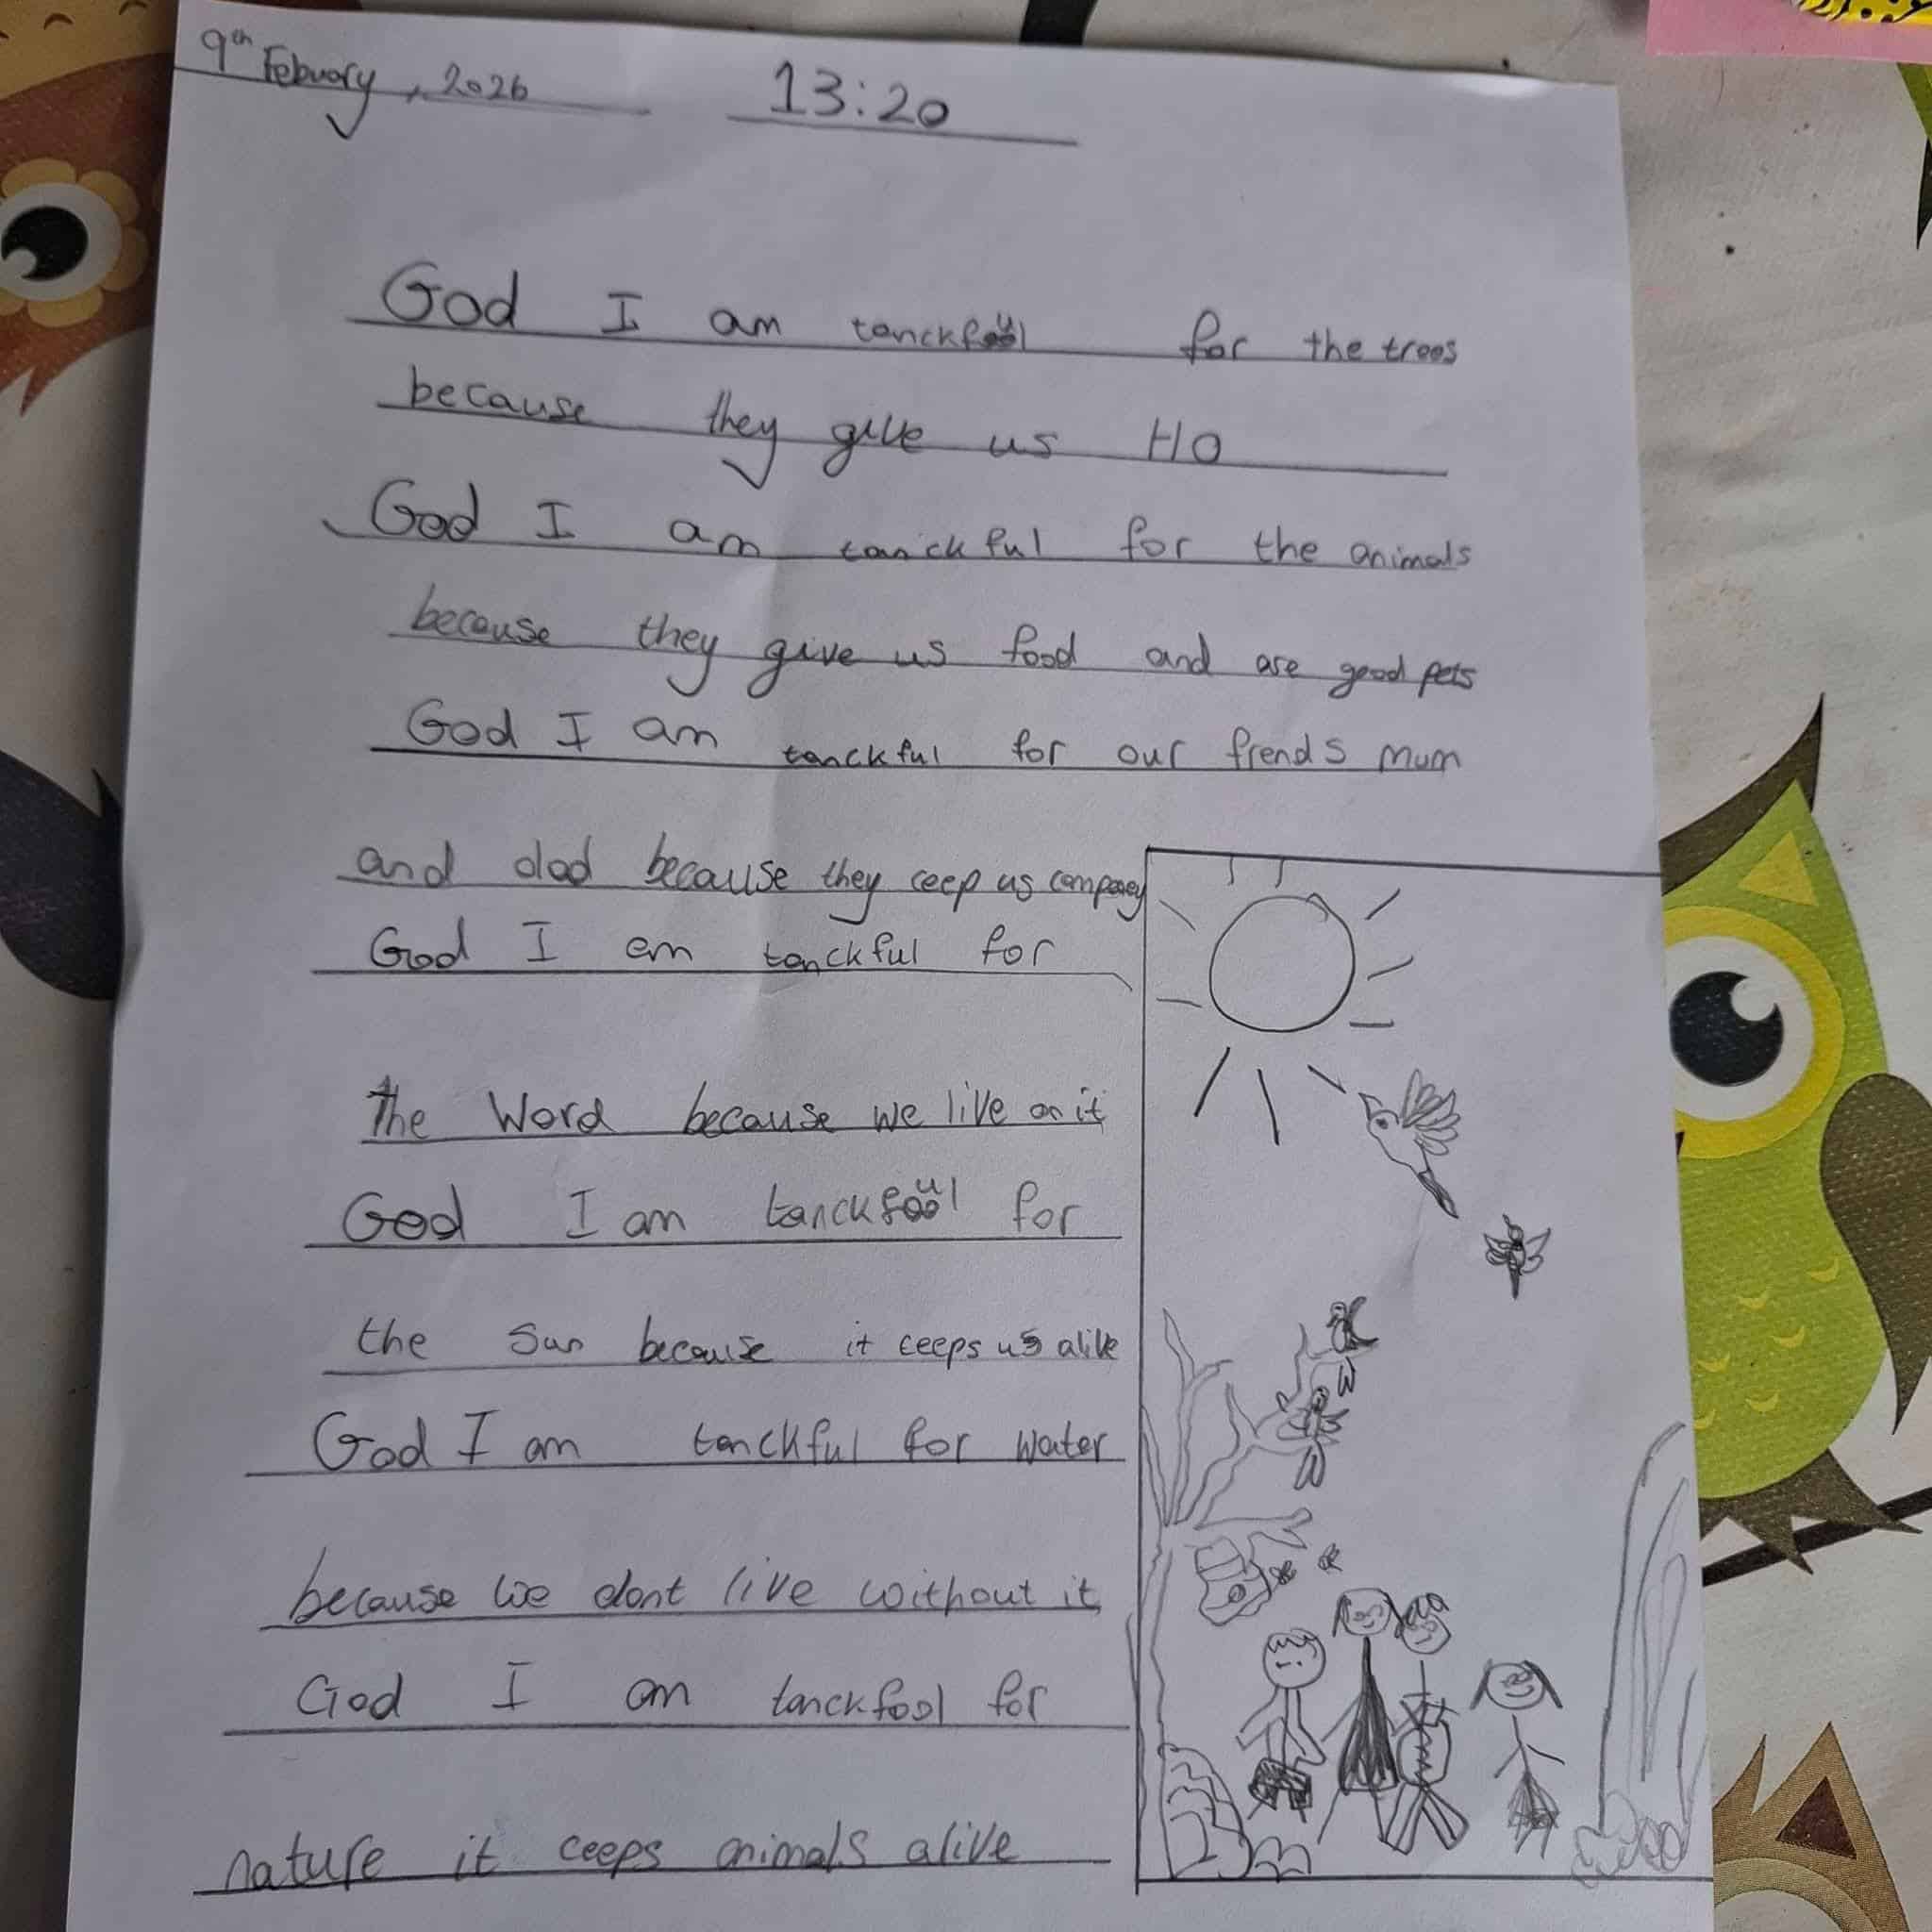 9th Febuary, 2026 13:20
God I am tanckful for the trees
because they give us HO
God I am tanckful for the animals
because they give us food and are good pets
God I am tanckful for our frends mum
and dad because they ceep us company
God I am tanckful for
the Word because we live on it
God I am tanckful for
the sun because it ceeps us alive
God I am tanckful for water
because we dont live without it
God I am tanckfool for
nature it ceeps animals alive